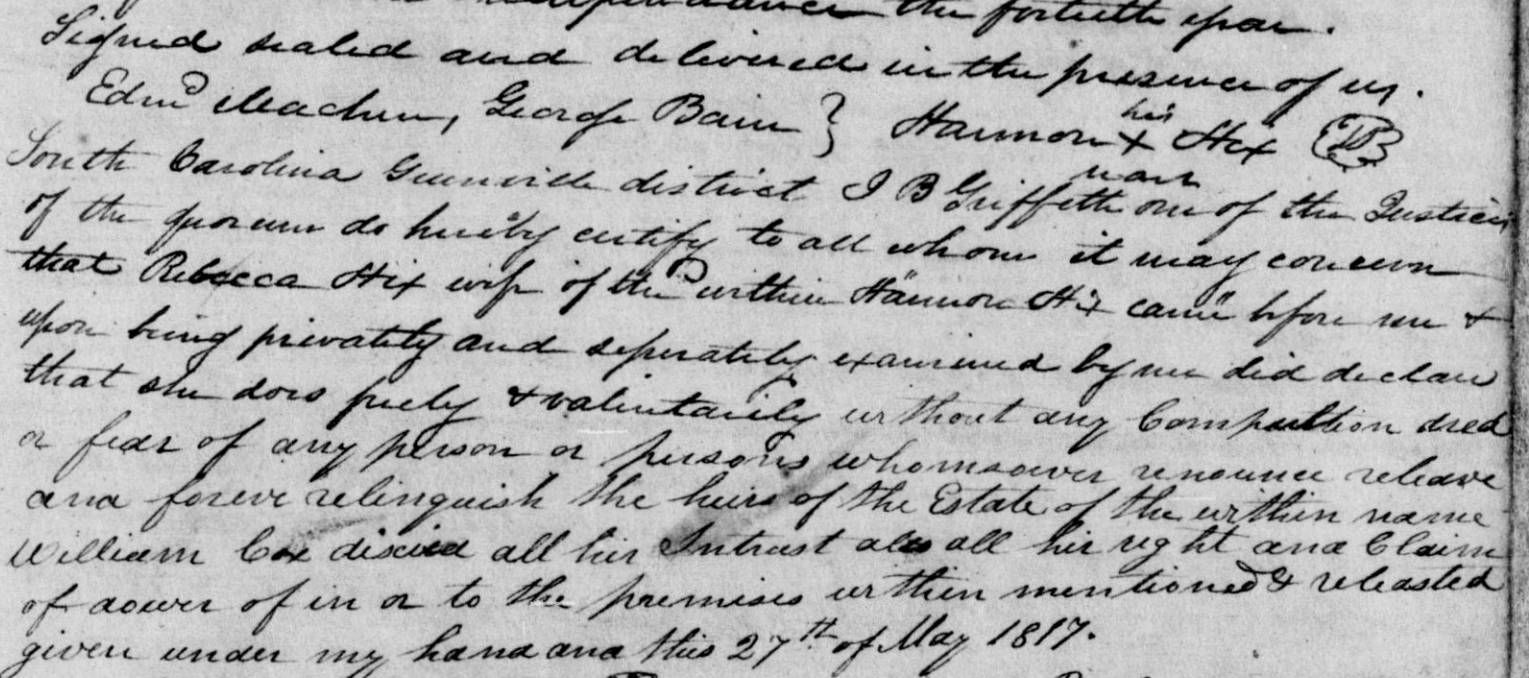 the fortieth year.
Signed sealed and delivered in the presence of us.
Edmd Meachen, George Bain } Hannon his + mark Hix
South Carolina Greenville district I B Griffeth one of the Justices
of the quorum do hereby certify to all whom it may concern
that Rebecca Hix wife of the within Hannon Hix came before me &
upon being privately and seperately examined by me did declare
that she does freely & valuntarily without any Compultion dred
or fear of any person or persons whomsoever renounce release
and foreve relinquish the heirs of the Estate of the within name
William Cox discied all her Intrust also all her right and Claim
of dower of in or to the premises within mentioned & releasted
given under my hand and this 27th of May 1817.